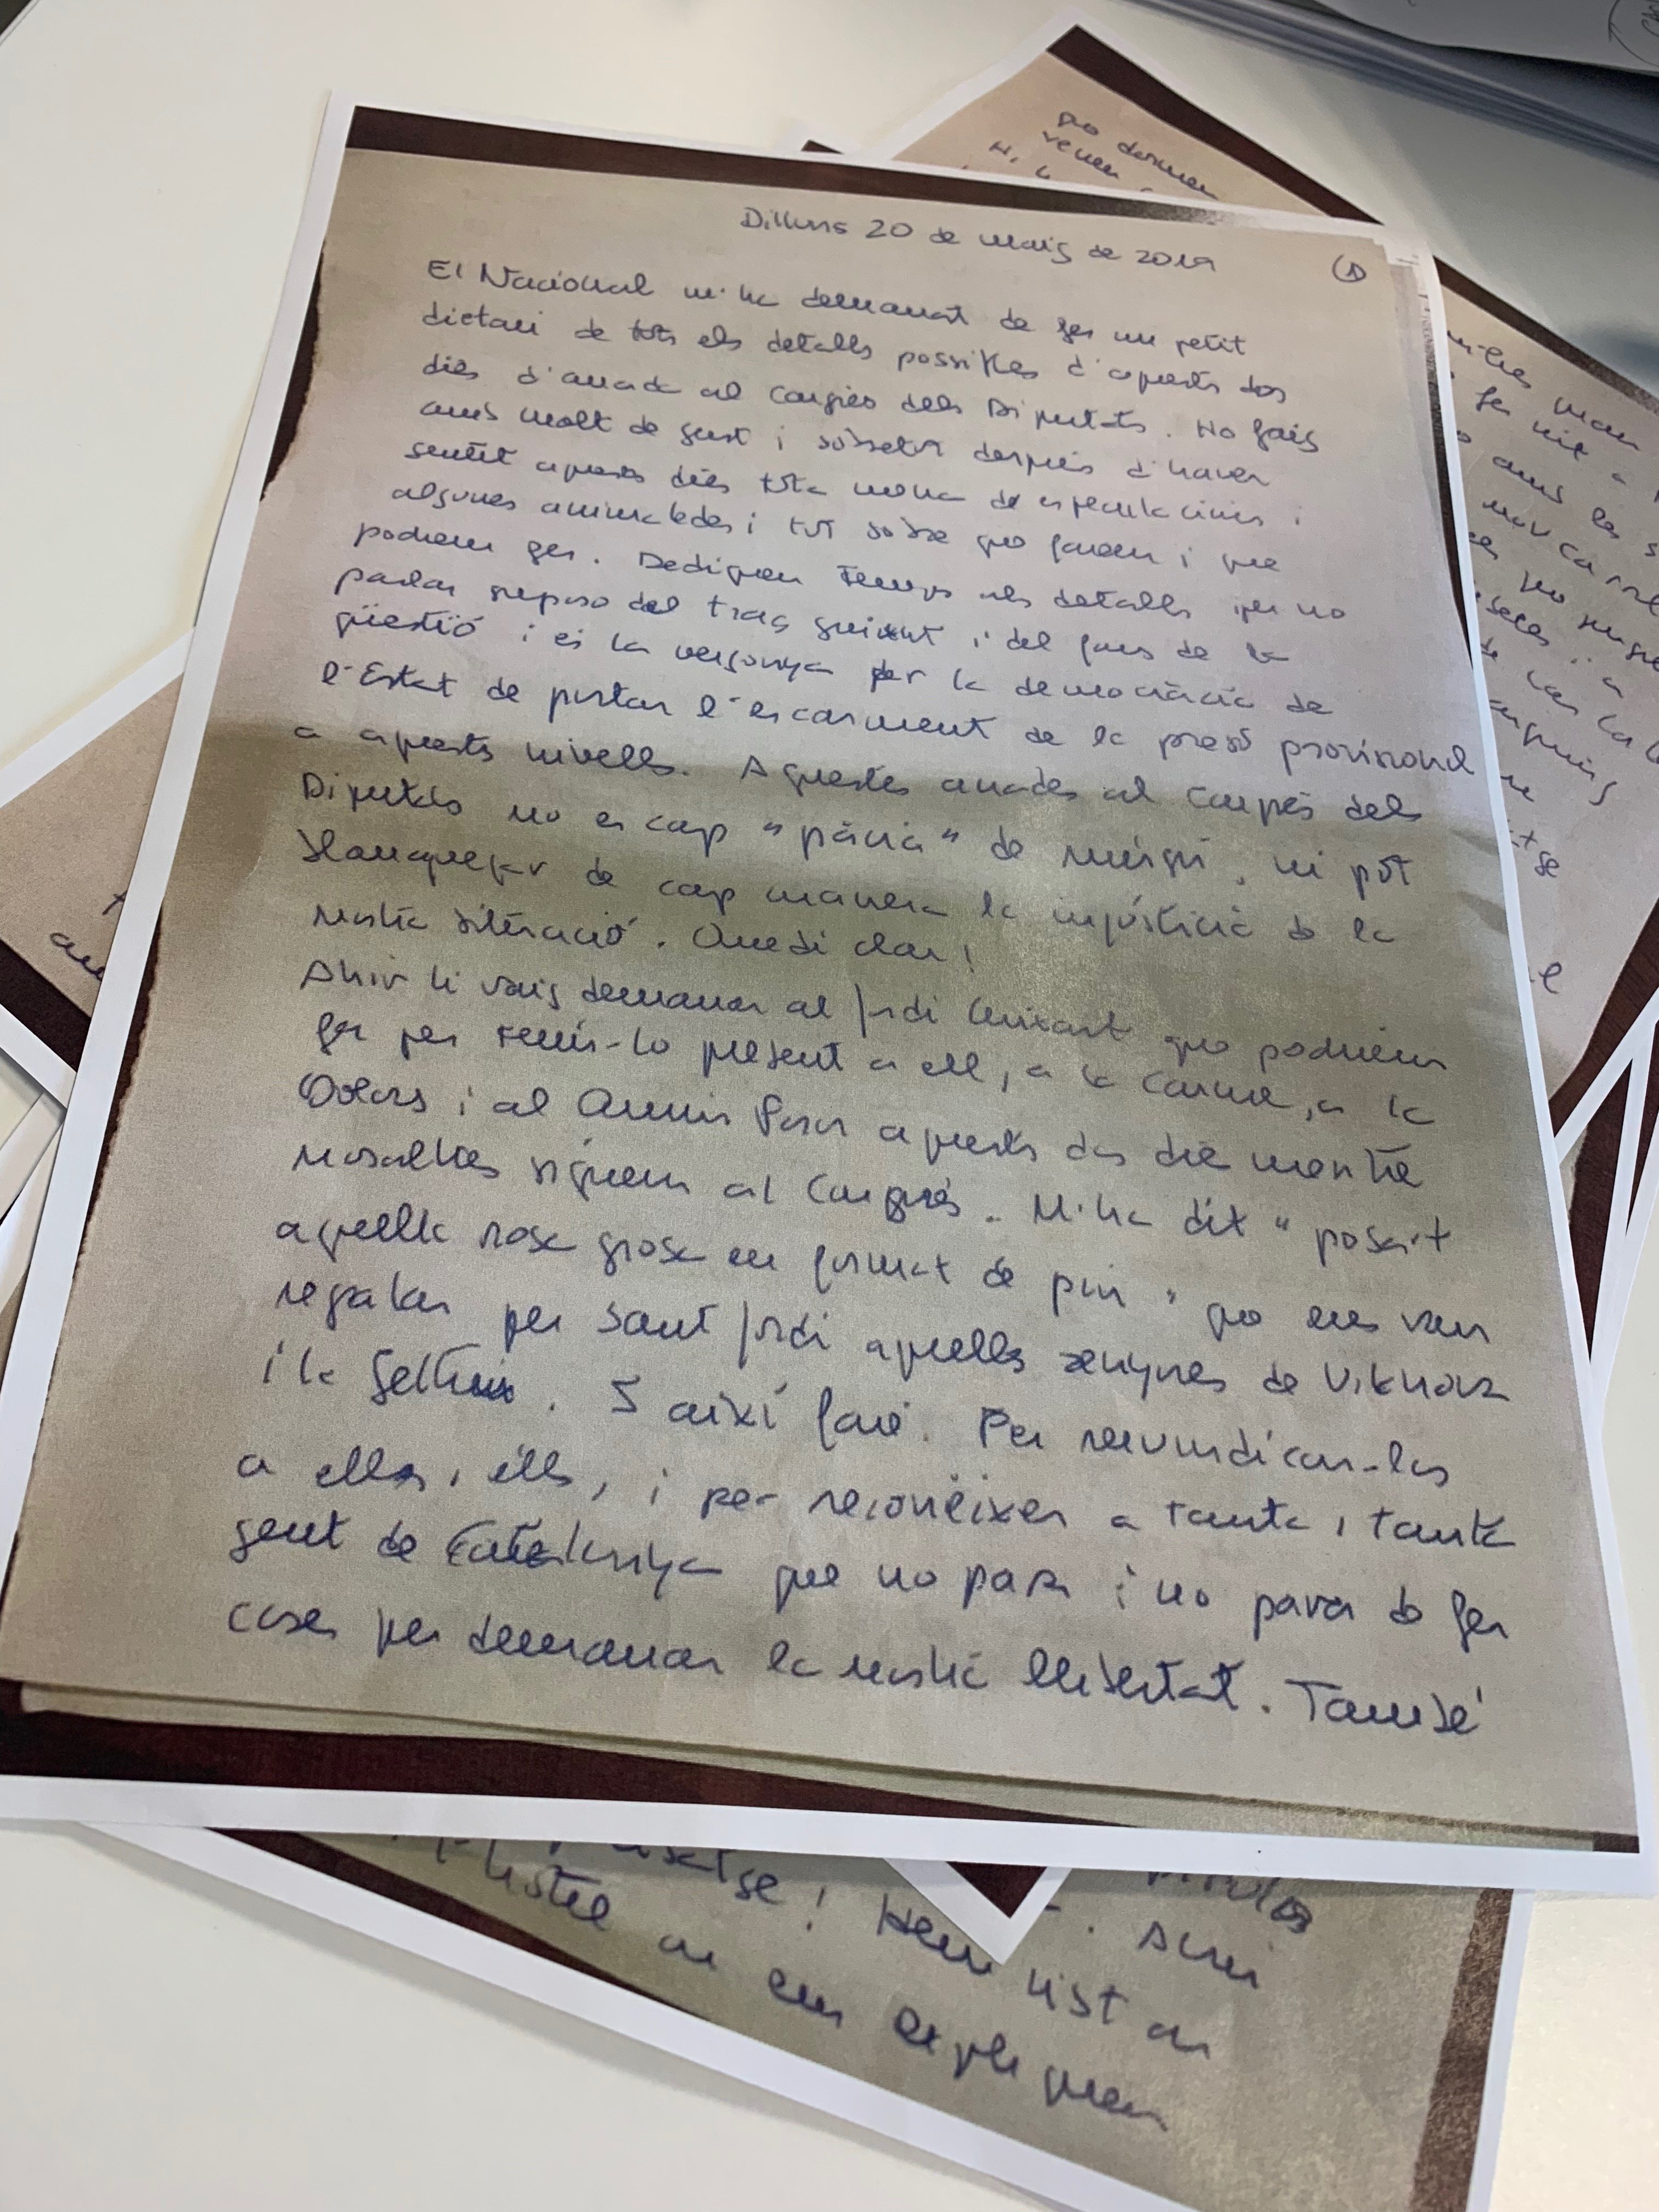 Dilluns 20 de maig de 2019
1
El Nacional m'ha demanat de fer un petit
dietari de tots els detalls possibles d'aquests dos
dies d'anada al Congrés dels Diputats. Ho faig
amb molt de gust i sobretot després d'haver
sentit aquests dies tota mena de especulacions i
algunes animalades i tot sobre que farem i que
podrem fer. Dediquem temps als detalls per no
parlar suposo del traç gruixut i del fons de la
qüestió i es la vergonya per la democràcia de
l'Estat de portar l'escarment de la presó provisional
a aquests nivells. Aquestes anades al Congrés dels
Diputats no es cap "gràcia" de ningú, ni pot
blanquejar de cap manera la injustícia de la
nostra situació. Quedi clar!
Ahir li vaig demanar al Jordi Cuixart que podriem
fer per tenir-lo present a ell, a la Carme, a la
Dolors i al Quim Forn aquests dos dies mentre
nosaltres siguem al Congrés. M'ha dit "posa't
aquella rosa grosa en format de pin" que ens van
regalar per Sant Jordi aquelles senyores de Vilanova
i la Geltrú. I així faré. Per reivindicar-los
a elles i ells, i per reconèixer a tanta i tanta
gent de Catalunya que no para i no para de fer
coses per demanar la nostra llibertat. També
que no dormen
venen
Hem vist en
em expliquen